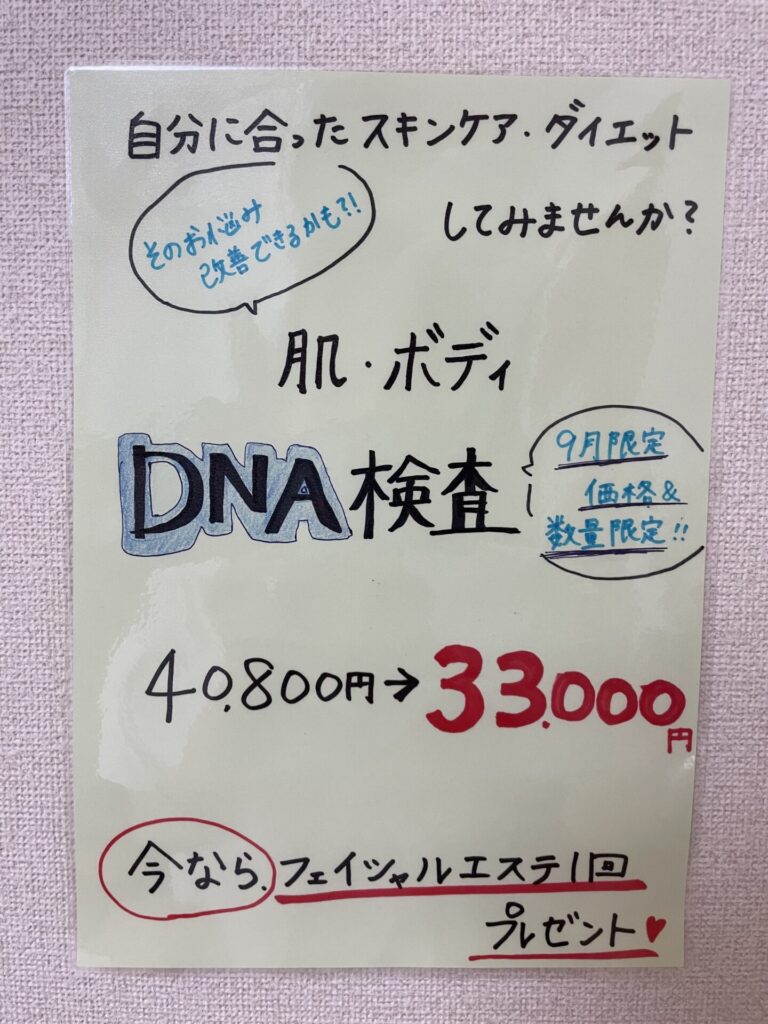 自分に合ったスキンケア・ダイエット
してみませんか?
そのお悩み
改善できるかも?!
肌・ボディ
DNA検査
9月限定
価格&
数量限定!!
40,800円→33,000円
今なら、フェイシャルエステ1回
プレゼント♥